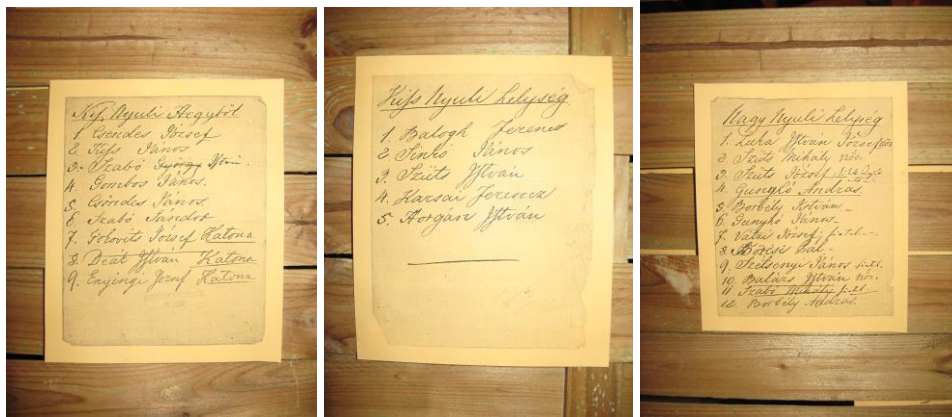 Kis Nyuli Hegyböl
1. Csendes József
2. Kifs János
3. Szabó György
4. Gombos János.
5. Csöndes János.
6. Szabó Sándor
7. Golovits József Katona
8. Deát Ist́ván Katona
9. Enyingi József Katona
Kifs Nyuli helység
1. Balogh Ferencz
2. Sinkó János
3. Szüts István
4. Karsai Ferencz
5. Horgán István
Nagy Nyuli helység
1. Luka István József
2. Szüts Mihály nős.
3. Szüts József
4. Gunyhó András.
5. Borbély István
6. Gunyhó János
7. Vatzi József
8. Pál
9. Szetsenyi János
10. Balázs István nős.
11. Szabó Mihály
12. Borbély András.